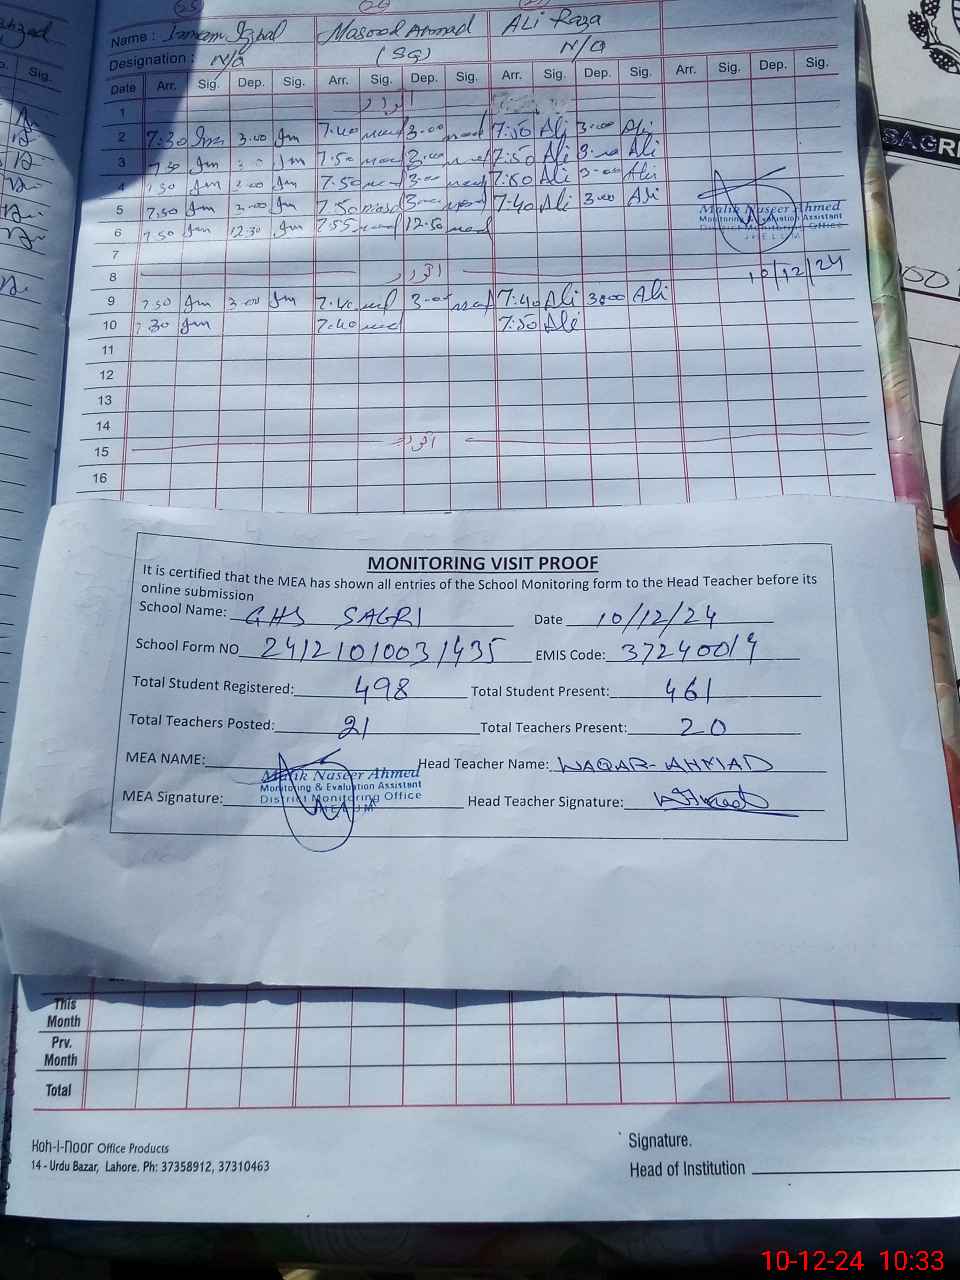 Name : Imam Iqbal Masood Ahmad ALi Raza
Designation : N/a (SG) N/a
Date Arr. Sig. Dep. Sig. Arr. Sig. Dep. Sig. Arr. Sig. Dep. Sig. Arr. Sig. Dep. Sig.
1 اتوار
2 7:30 3:00 7:40 3:00 7:50 Ali 3:00 Ali
3 7:50 3:00 7:50 Ali Ali
4 7:50 3:00 Ali 3:00 Ali
5 7:50 3:00 7:50 7:40 Ali 3:00 Ali
6 7:50 12:30 7:55 12:50
7
8 اتوار
9 7:50 3:00 7:40 3:00 7:40 Ali 3:00 Ali
10 7:40 7:50 Ali
11
12
13
14
15 اتوار
16
Malik Naseer Ahmed
Monitoring & Evaluation Assistant
District Monitoring Office
JHELUM
10/12/24
SAGRI
MONITORING VISIT PROOF
It is certified that the MEA has shown all entries of the School Monitoring form to the Head Teacher before its
online submission
School Name: GHS SAGRI Date 10/12/24
School Form NO 24121010031435 EMIS Code: 37240019
Total Student Registered: 498 Total Student Present: 461
Total Teachers Posted: 21 Total Teachers Present: 20
MEA NAME: Head Teacher Name: WAQAR-AHMAD
Malik Naseer Ahmed
Monitoring & Evaluation Assistant
District Monitoring Office
JHELUM
MEA Signature: Head Teacher Signature:
This
Month
Prv.
Month
Total
Koh-I-Noor Office Products
14 - Urdu Bazar, Lahore. Ph: 37358912, 37310463
Signature.
Head of Institution
10-12-24 10:33